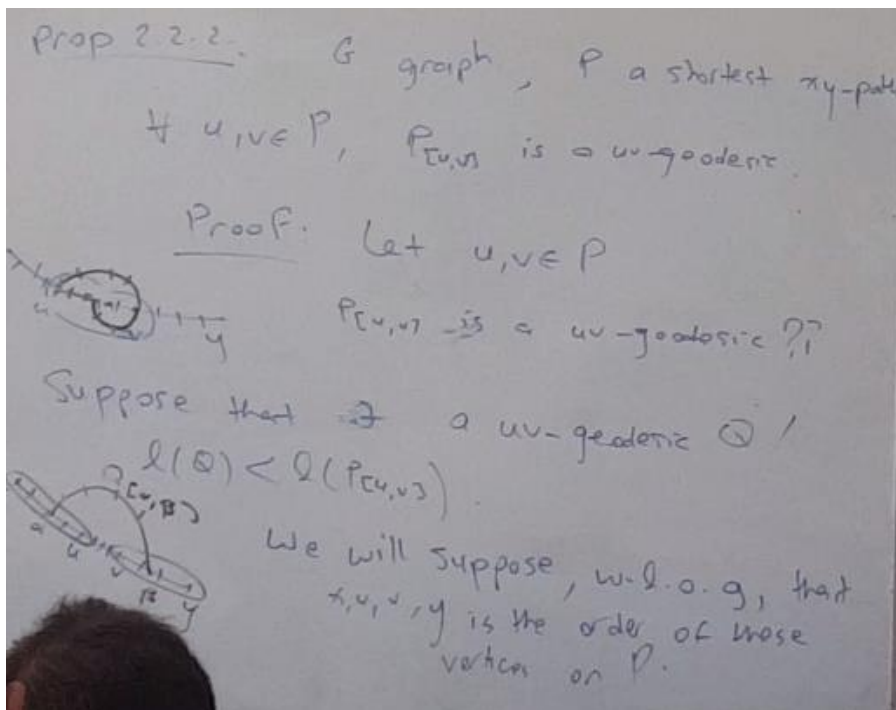 Prop 2.2.2. G graph, P a shortest xy-path
∀ u,v∈P, P[u,v] is a uv-geodesic.
Proof. Let u,v∈P
u y
P[u,v] is a uv-geodesic ??
Suppose that ∃ a uv-geodesic Q /
l(Q) < l(P[u,v]).
u v β y
We will suppose, w.l.o.g, that
x,u,v,y is the order of those
vertices on P.